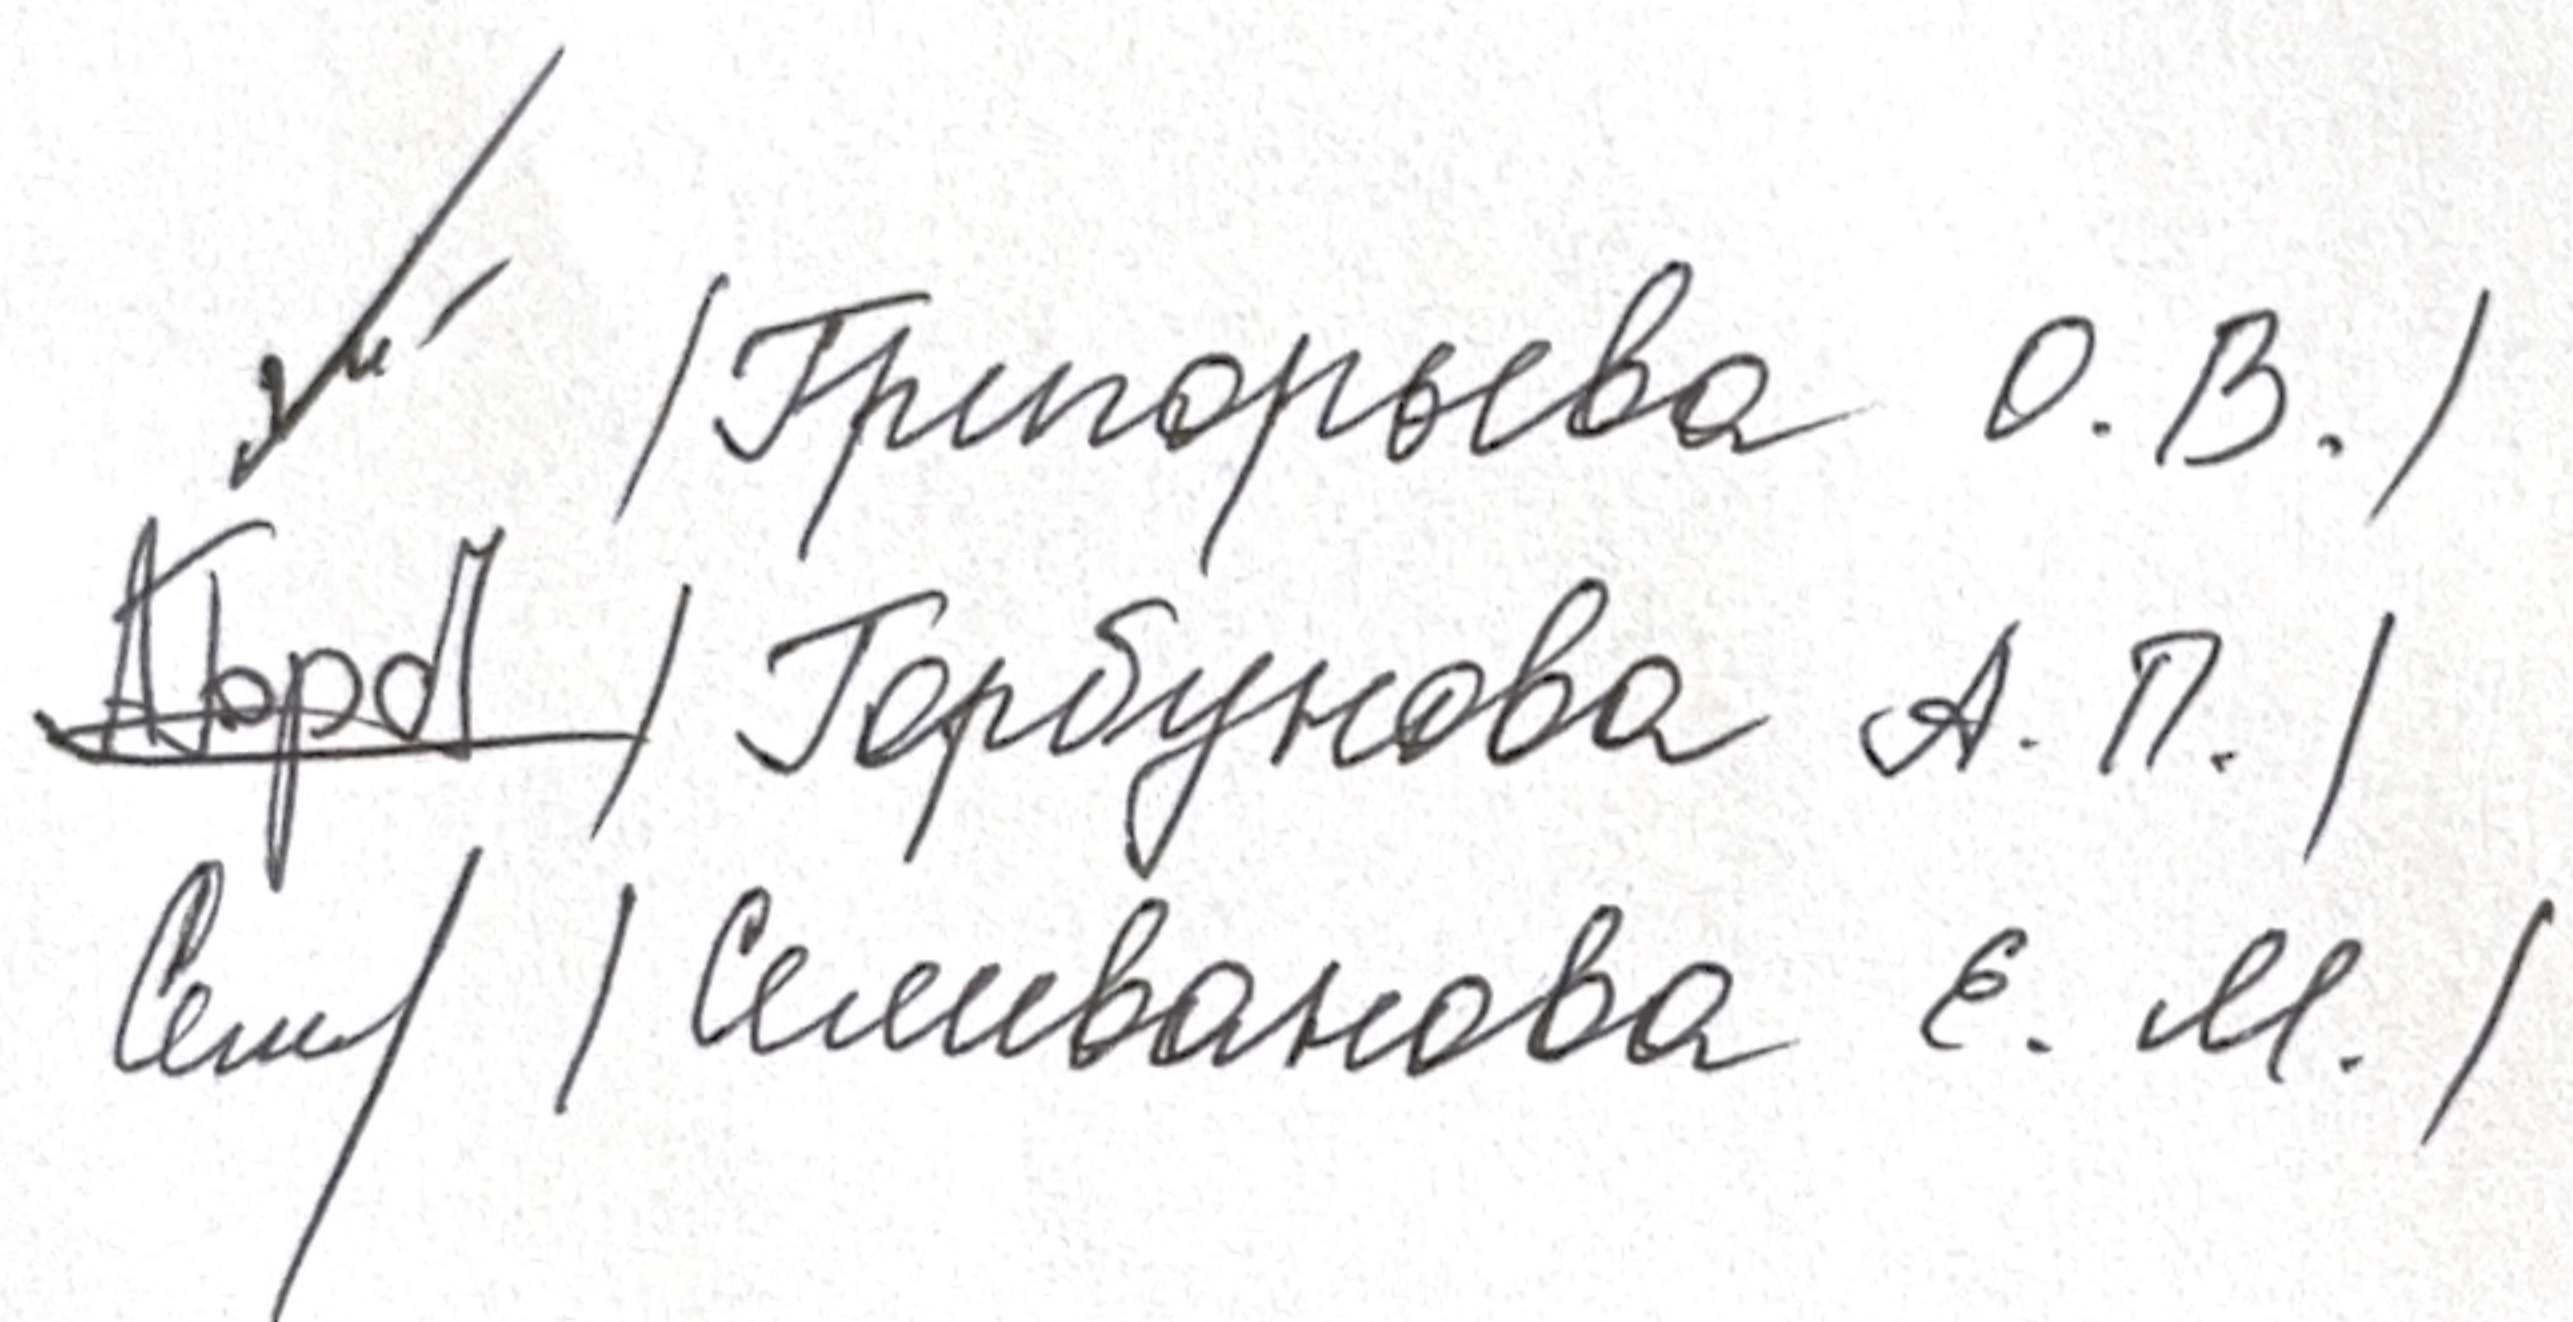 /Григорьева О. В./
/Горбунова А. П./
/Селиванова Е. М./